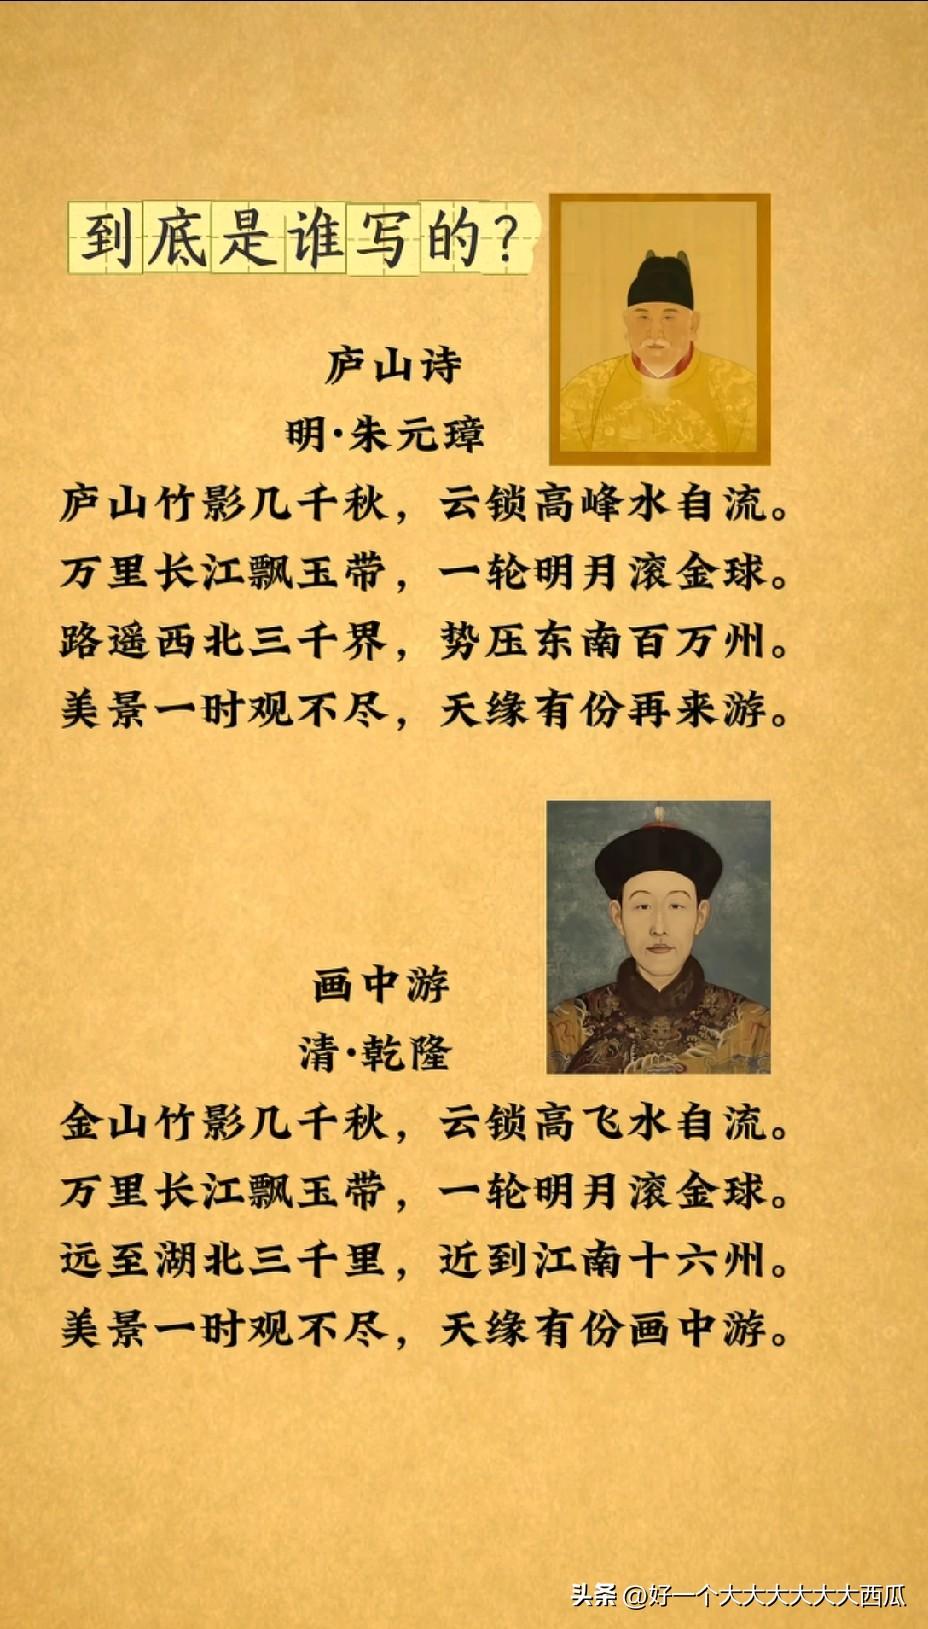 到底是谁写的？
庐山诗
明·朱元璋
庐山竹影几千秋，云锁高峰水自流。
万里长江飘玉带，一轮明月滚金球。
路遥西北三千界，势压东南百万州。
美景一时观不尽，天缘有份再来游。
画中游
清·乾隆
金山竹影几千秋，云锁高飞水自流。
万里长江飘玉带，一轮明月滚金球。
远至湖北三千里，近到江南十六州。
美景一时观不尽，天缘有份画中游。
头条 @好一个大大大大大大西瓜